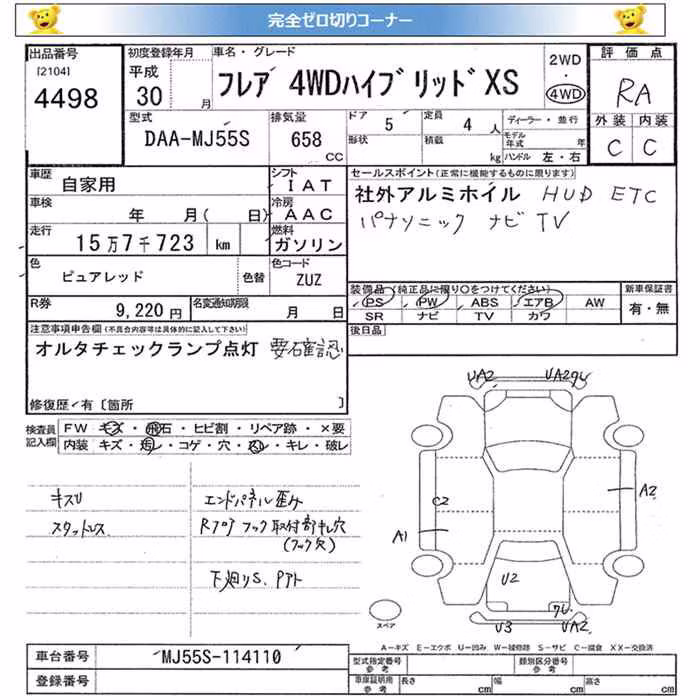 完全ゼロ切りコーナー
出品番号
[2104]
4498
初度登録年月
平成
30 月
車名・グレード
フレア 4WDハイブリッドXS
2WD
・
4WD
評価点
RA
外装 内装
C C
型式
DAA-MJ55S
排気量
658
CC
ドア
5
定員
4 人
形状
積載
kg
ディーラー・並行
モデル年式 年
ハンドル 左・右
車歴
自家用
シフト
IAT
車検
年 月( 日)
冷房
AAC
走行
15万7千723 km
燃料
ガソリン
色
ピュアレッド
色替
色コード
ZUZ
R券
9,220円
名変通知期限
月 日
セールスポイント(正常に機能するものに限ります)
社外アルミホイル HUD ETC
パナソニック ナビ TV
装備品(純正品に限り○をつけてください)
PS PW ABS エアB AW
SR ナビ TV カワ
新車保証書
有・無
後日品
注意事項申告欄(不具合内容等は具体的に記入して下さい)
オルタチェックランプ点灯 要確認
修復歴・有〔箇所 〕
検査員
記入欄
FW キズ・飛石・ヒビ割・リペア跡・×要
内装 キズ・汚レ・コゲ・穴・スレ・キレ・破レ
キスリ
スタットレス
エンドパネル歪ケ
Rフロアフック取付部キレ穴
(フック欠)
下廻りS、Pアト
UA2
A2
C2
A1
U2
U3
UA2
スペア
A-キズ E-エクボ U-凹み W-補修跡 S-サビ C-腐食 XX-交換済
車台番号
MJ55S-114110
登録番号
型式指定番号
参考
類別区分番号
参考
車庫証明用
参考
長さ cm
幅 cm
高さ cm